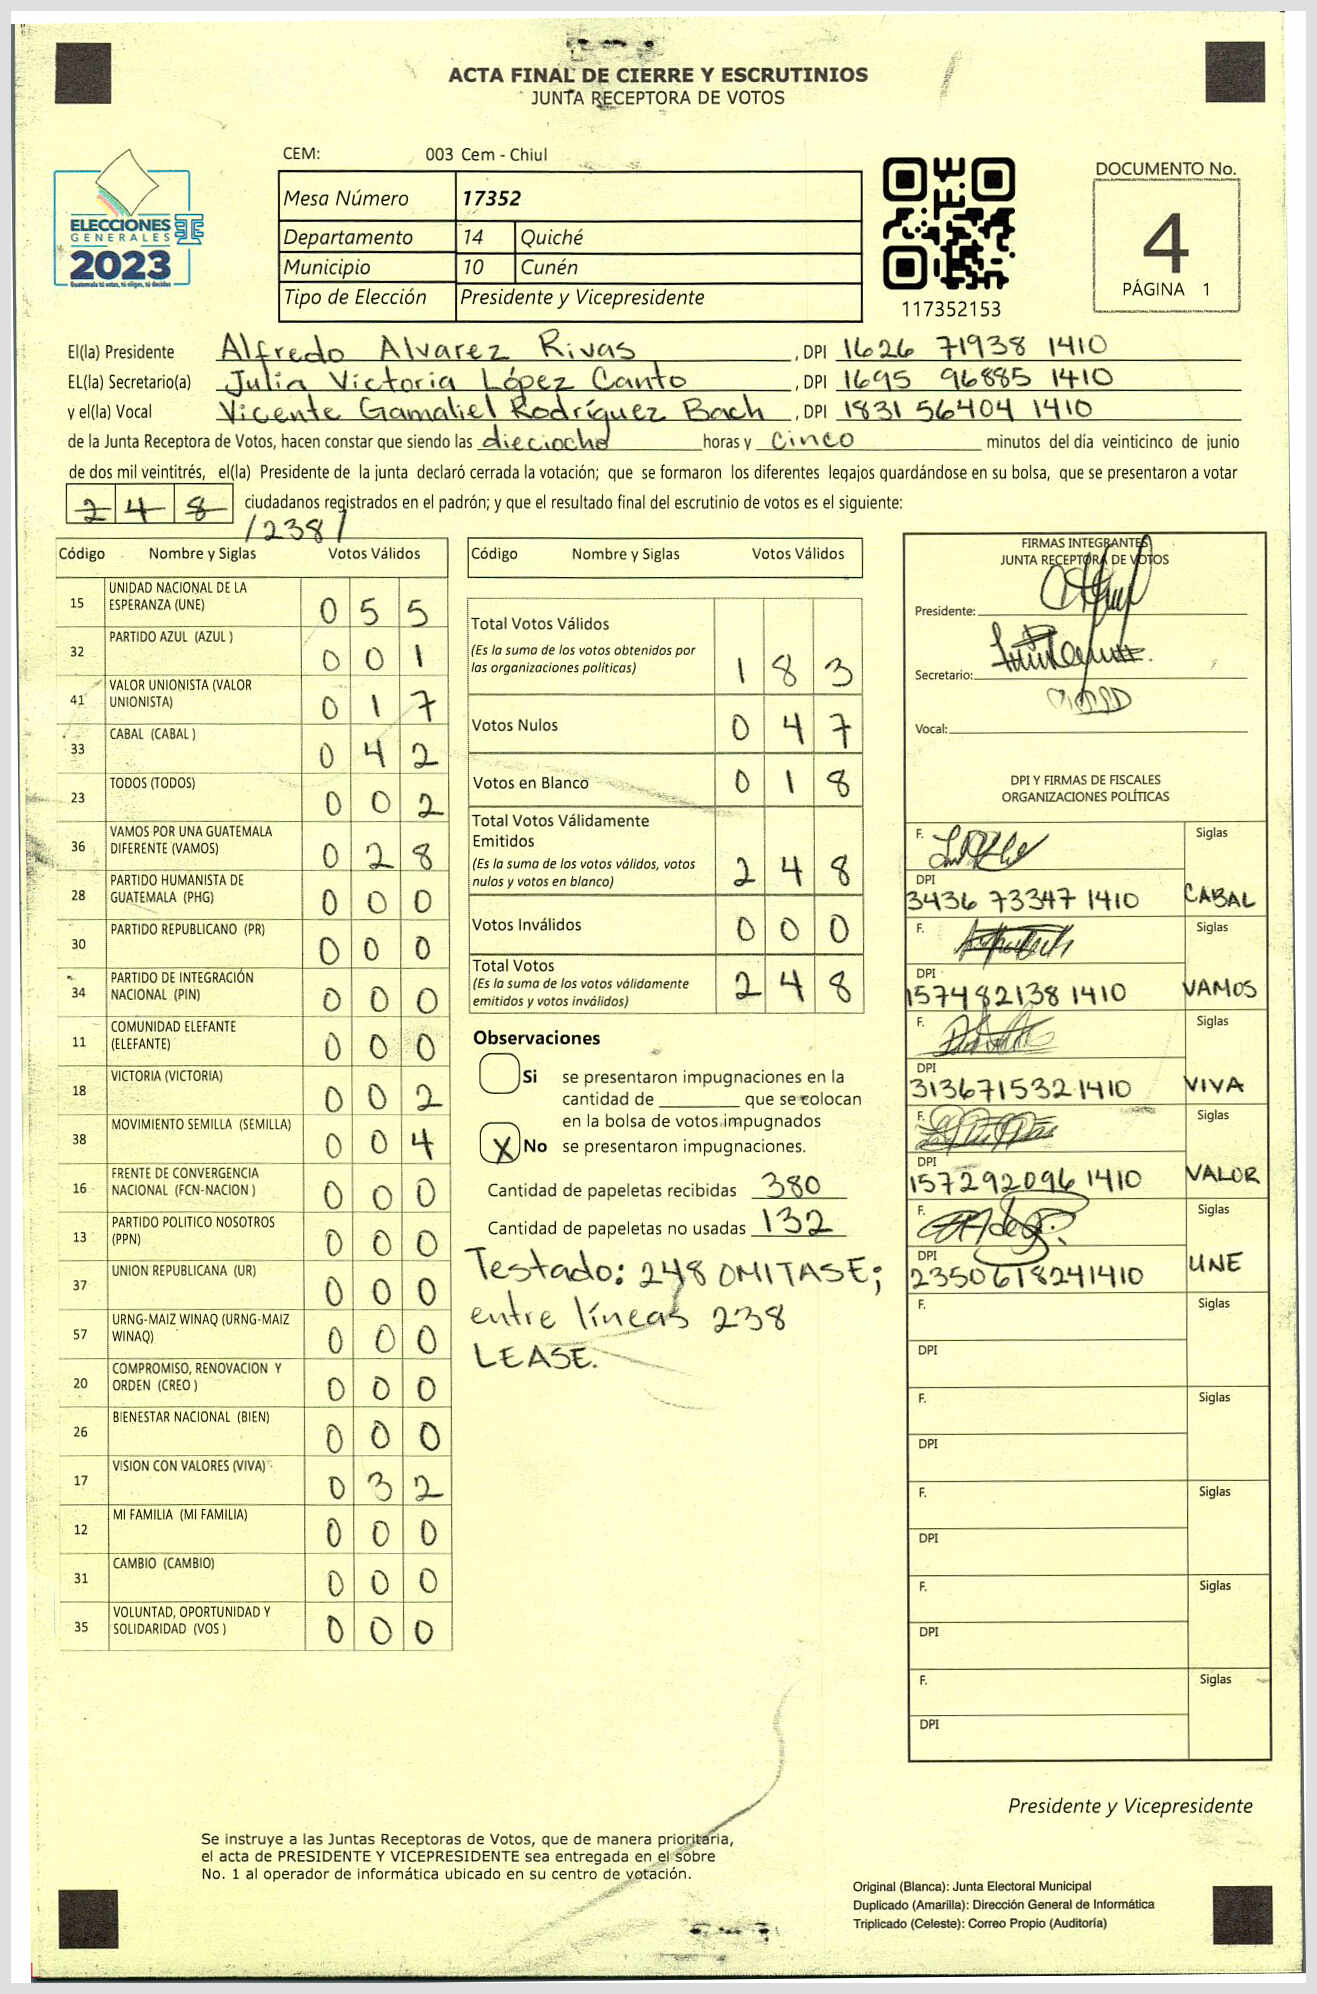 ACTA FINAL DE CIERRE Y ESCRUTINIOS
JUNTA RECEPTORA DE VOTOS
ELECCIONES
GENERALES
2023
Guatemala tú votas, tú eliges, tú decides
CEM: 003 Cem - Chiul
Mesa Número 17352
Departamento 14 Quiché
Municipio 10 Cunén
Tipo de Elección Presidente y Vicepresidente
117352153
DOCUMENTO No.
4
PÁGINA 1
El(la) Presidente Alfredo Alvarez Rivas , DPI 1626 71938 1410
EL(la) Secretario(a) Julia Victoria López Canto , DPI 1695 96885 1410
y el(la) Vocal Vicente Gamaliel Rodríguez Bach , DPI 1831 56404 1410
de la Junta Receptora de Votos, hacen constar que siendo las dieciocho horas y cinco minutos del día veinticinco de junio
de dos mil veintitrés, el(la) Presidente de la junta declaró cerrada la votación; que se formaron los diferentes legajos quardándose en su bolsa, que se presentaron a votar
248 ciudadanos registrados en el padrón; y que el resultado final del escrutinio de votos es el siguiente:
/238/
Código Nombre y Siglas Votos Válidos
15 UNIDAD NACIONAL DE LA
ESPERANZA (UNE) 055
32 PARTIDO AZUL (AZUL ) 001
41 VALOR UNIONISTA (VALOR
UNIONISTA) 017
33 CABAL (CABAL ) 042
23 TODOS (TODOS) 002
36 VAMOS POR UNA GUATEMALA
DIFERENTE (VAMOS) 028
28 PARTIDO HUMANISTA DE
GUATEMALA (PHG) 000
30 PARTIDO REPUBLICANO (PR) 000
34 PARTIDO DE INTEGRACIÓN
NACIONAL (PIN) 000
11 COMUNIDAD ELEFANTE
(ELEFANTE) 000
18 VICTORIA (VICTORIA) 002
38 MOVIMIENTO SEMILLA (SEMILLA) 004
16 FRENTE DE CONVERGENCIA
NACIONAL (FCN-NACION ) 000
13 PARTIDO POLITICO NOSOTROS
(PPN) 000
37 UNION REPUBLICANA (UR) 000
57 URNG-MAIZ WINAQ (URNG-MAIZ
WINAQ) 000
20 COMPROMISO, RENOVACION Y
ORDEN (CREO ) 000
26 BIENESTAR NACIONAL (BIEN) 000
17 VISION CON VALORES (VIVA) 032
12 MI FAMILIA (MI FAMILIA) 000
31 CAMBIO (CAMBIO) 000
35 VOLUNTAD, OPORTUNIDAD Y
SOLIDARIDAD (VOS ) 000
Código Nombre y Siglas Votos Válidos
Total Votos Válidos
(Es la suma de los votos obtenidos por
las organizaciones políticas) 183
Votos Nulos 047
Votos en Blanco 018
Total Votos Válidamente
Emitidos
(Es la suma de los votos válidos, votos
nulos y votos en blanco) 248
Votos Inválidos 000
Total Votos
(Es la suma de los votos válidamente
emitidos y votos inválidos) 248
Observaciones
Si se presentaron impugnaciones en la
cantidad de ________ que se colocan
en la bolsa de votos impugnados
X No se presentaron impugnaciones.
Cantidad de papeletas recibidas 380
Cantidad de papeletas no usadas 132
Testado: 248 OMITASE;
entre líneas 238
LEASE.
FIRMAS INTEGRANTES
JUNTA RECEPTORA DE VOTOS
Presidente:
Secretario:
Vocal:
DPI Y FIRMAS DE FISCALES
ORGANIZACIONES POLÍTICAS
F. Siglas
DPI
3436 73347 1410 CABAL
F. Siglas
DPI
157482138 1410 VAMOS
F. Siglas
DPI
313671532 1410 VIVA
F. Siglas
DPI
157292096 1410 VALOR
F. Siglas
DPI
2350618241410 UNE
F. Siglas
DPI
F. Siglas
DPI
F. Siglas
DPI
F. Siglas
DPI
F. Siglas
DPI
Presidente y Vicepresidente
Se instruye a las Juntas Receptoras de Votos, que de manera prioritaria,
el acta de PRESIDENTE Y VICEPRESIDENTE sea entregada en el sobre
No. 1 al operador de informática ubicado en su centro de votación.
Original (Blanca): Junta Electoral Municipal
Duplicado (Amarilla): Dirección General de Informática
Triplicado (Celeste): Correo Propio (Auditoría)